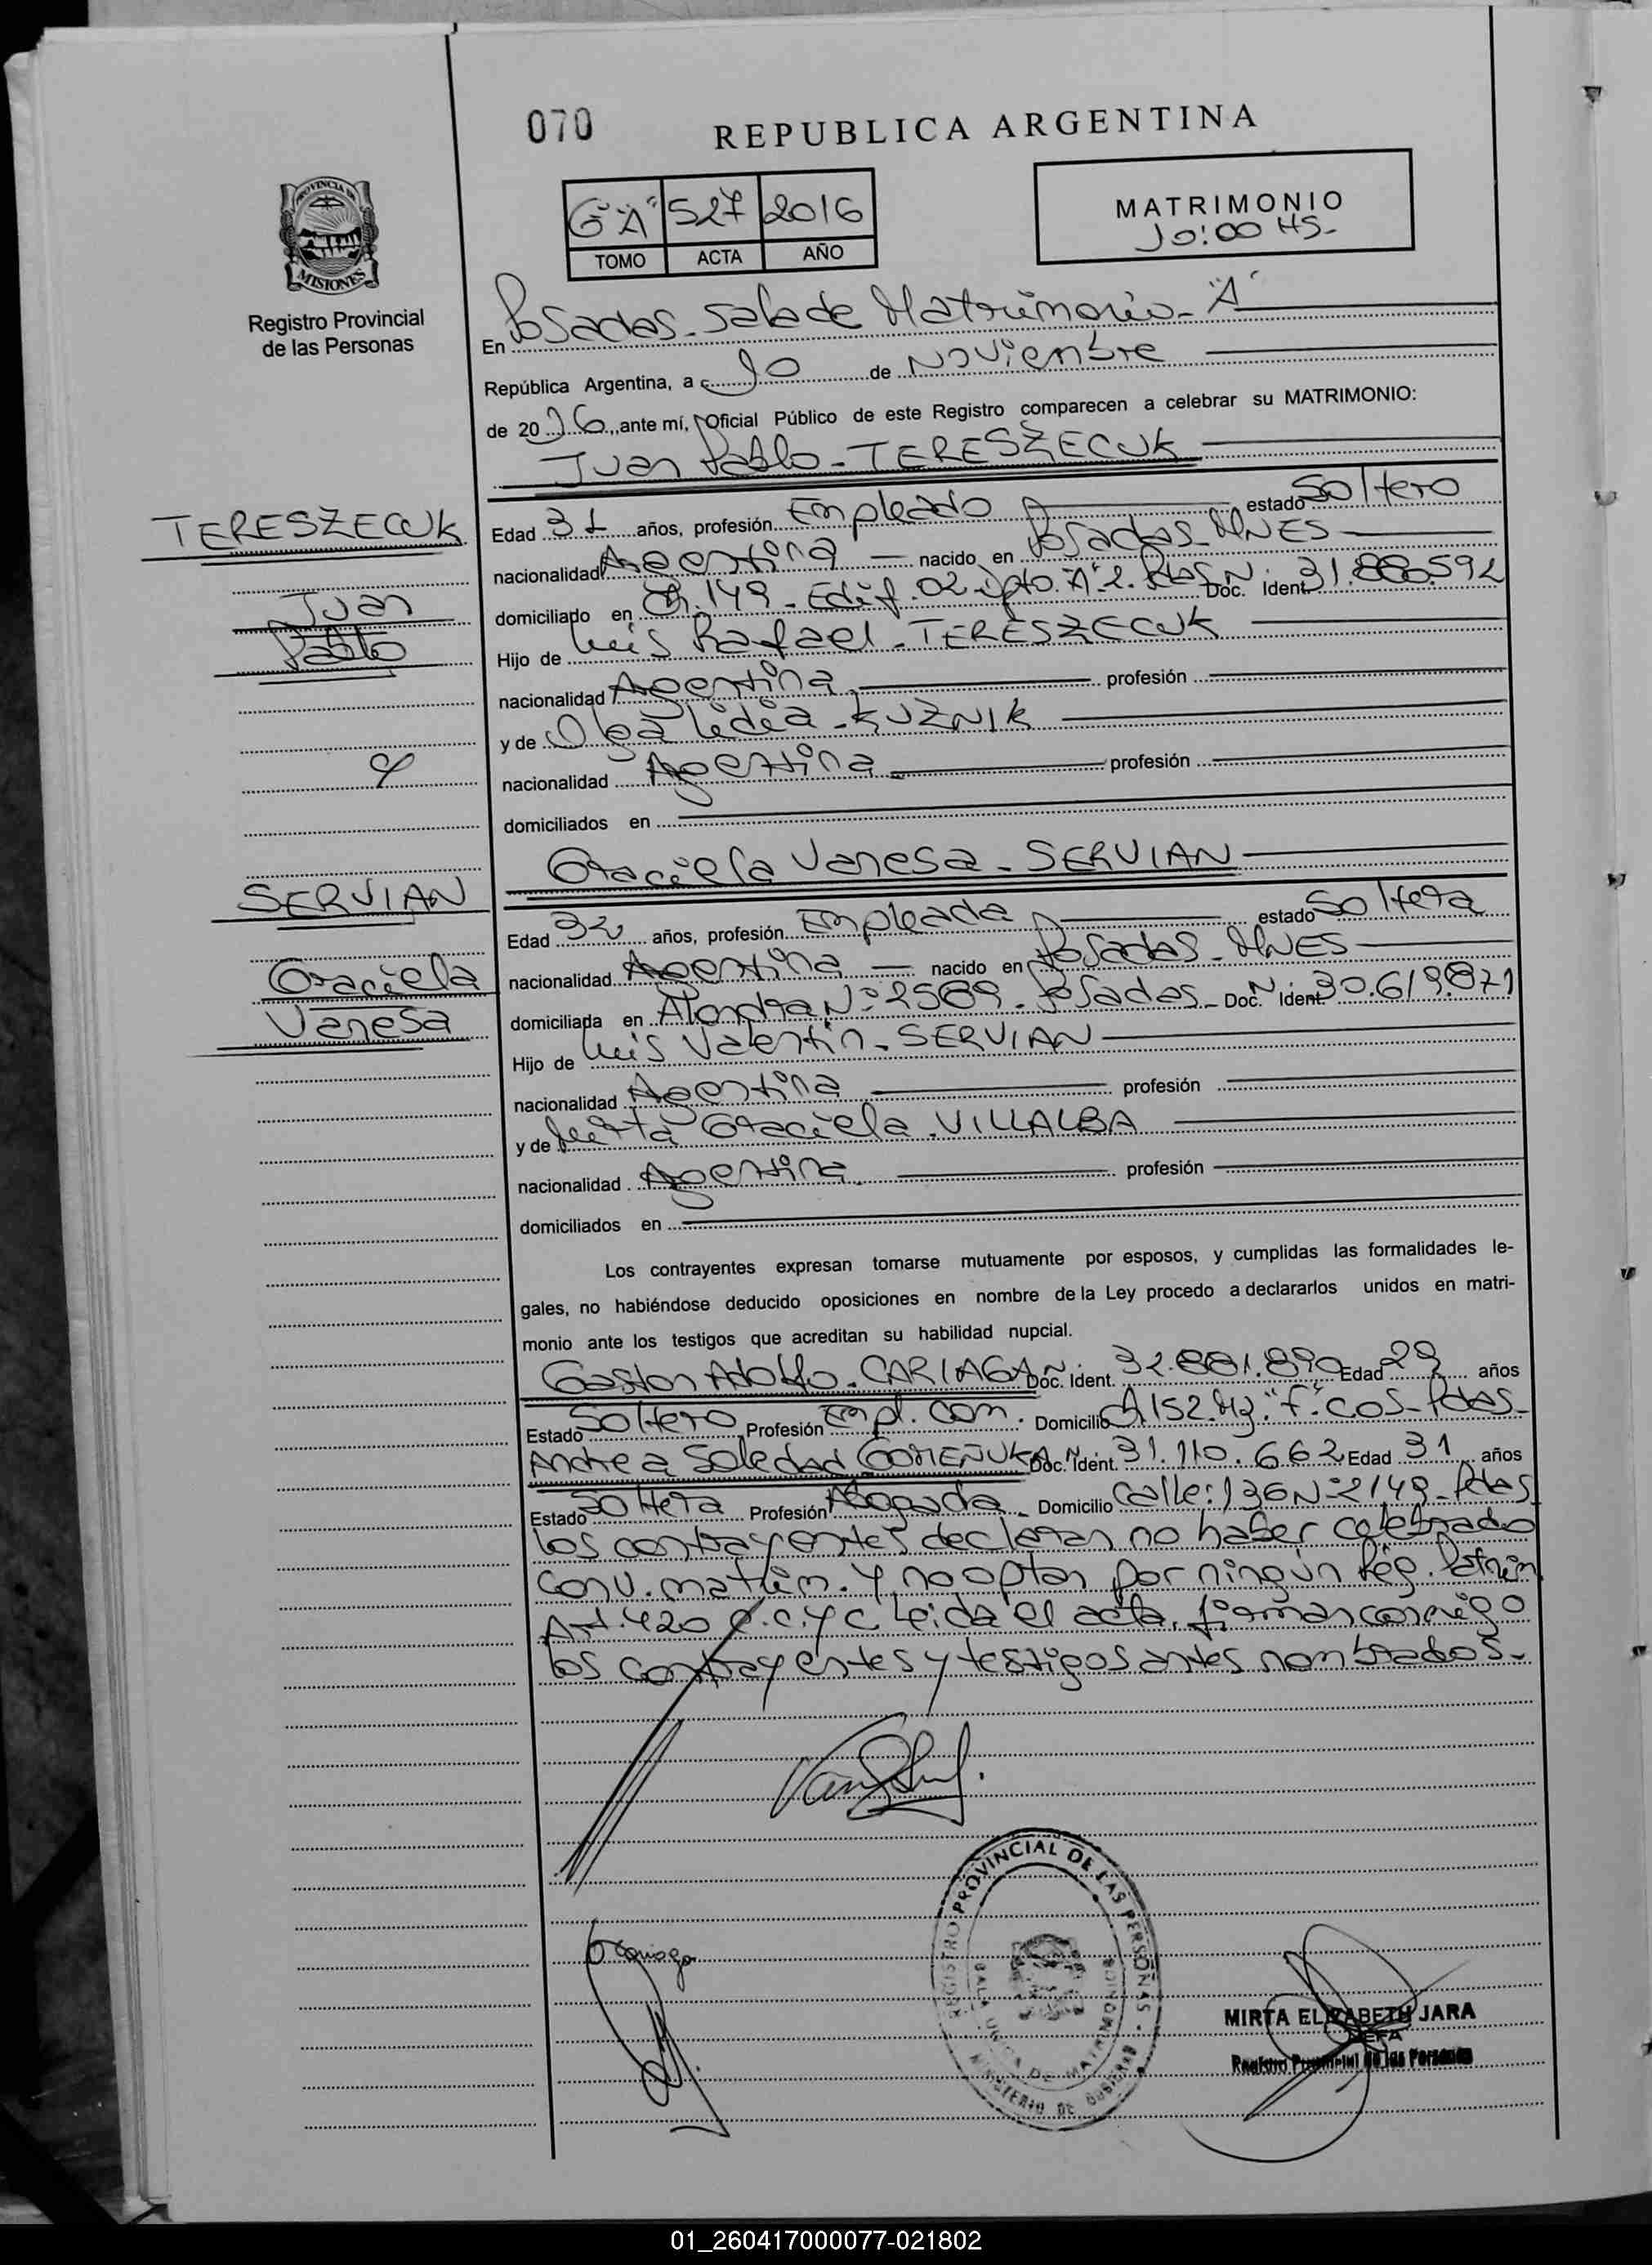 070
REPUBLICA ARGENTINA
6° "A" 527 2016
TOMO ACTA AÑO
MATRIMONIO
10:00 HS-
PROVINCIA DE
MISIONES
Registro Provincial
de las Personas
En Posadas - Sala de Matrimonio - "A"
República Argentina, a 10 de Noviembre
de 20 16 ante mí, Oficial Público de este Registro comparecen a celebrar su MATRIMONIO:
Juan Pablo - TERESZECUK
TERESZECUK
Juan
Pablo
Edad 31 años, profesión Empleado estado Soltero
nacionalidad Argentina nacido en Posadas - MNES
domiciliado en Ch. 149 - Edif. 02 - Dpto. "A" 2. Pdas Doc. N. Ident 31.886.592
Hijo de Luis Rafael - TERESZECUK
nacionalidad Argentina profesión
y de Olga Lidia - KUZNIK
y
nacionalidad Argentina profesión
domiciliados en
Graciela Vanesa - SERVIAN
SERVIAN
Graciela
Vanesa
Edad 32 años, profesión Empleada estado Soltera
nacionalidad Argentina nacido en Posadas - MNES
domiciliada en Alondra N° 2589 - Posadas - Doc. N. Ident 30.619.871
Hijo de Luis Valentin - SERVIAN
nacionalidad Argentina profesión
y de Mirta Graciela - VILLALBA
nacionalidad Argentina profesión
domiciliados en
Los contrayentes expresan tomarse mutuamente por esposos, y cumplidas las formalidades le-
gales, no habiéndose deducido oposiciones en nombre de la Ley procedo a declararlos unidos en matri-
monio ante los testigos que acreditan su habilidad nupcial.
Gaston Adolfo - CARIAGA Doc. N. Ident. 32.881.890 Edad 29 años
Estado Soltero Profesión Empl. Com. Domicilio Ch 152. Mz. "F". COS - Pdas -
Andrea Soledad GOMEÑUKA Doc. N. Ident. 31.110.662 Edad 31 años
Estado Soltera Profesión Abogada - Domicilio Calle: 136 N° 2149 - Pdas
Los contrayentes declaran no haber celebrado
Conv. matrim. y no optan por ningún Rég. Patrim
Art. 420 C.C. y C. Leída el acta, firman conmigo
los contrayentes y testigos antes nombrados -
REGISTRO PROVINCIAL DE LAS PERSONAS -
SALA UNICA DE MATRIMONIOS
MINISTERIO DE GOBIERNO
MIRTA ELIZABETH JARA
JEFA
Registro Provincial de las Personas
01_260417000077-021802